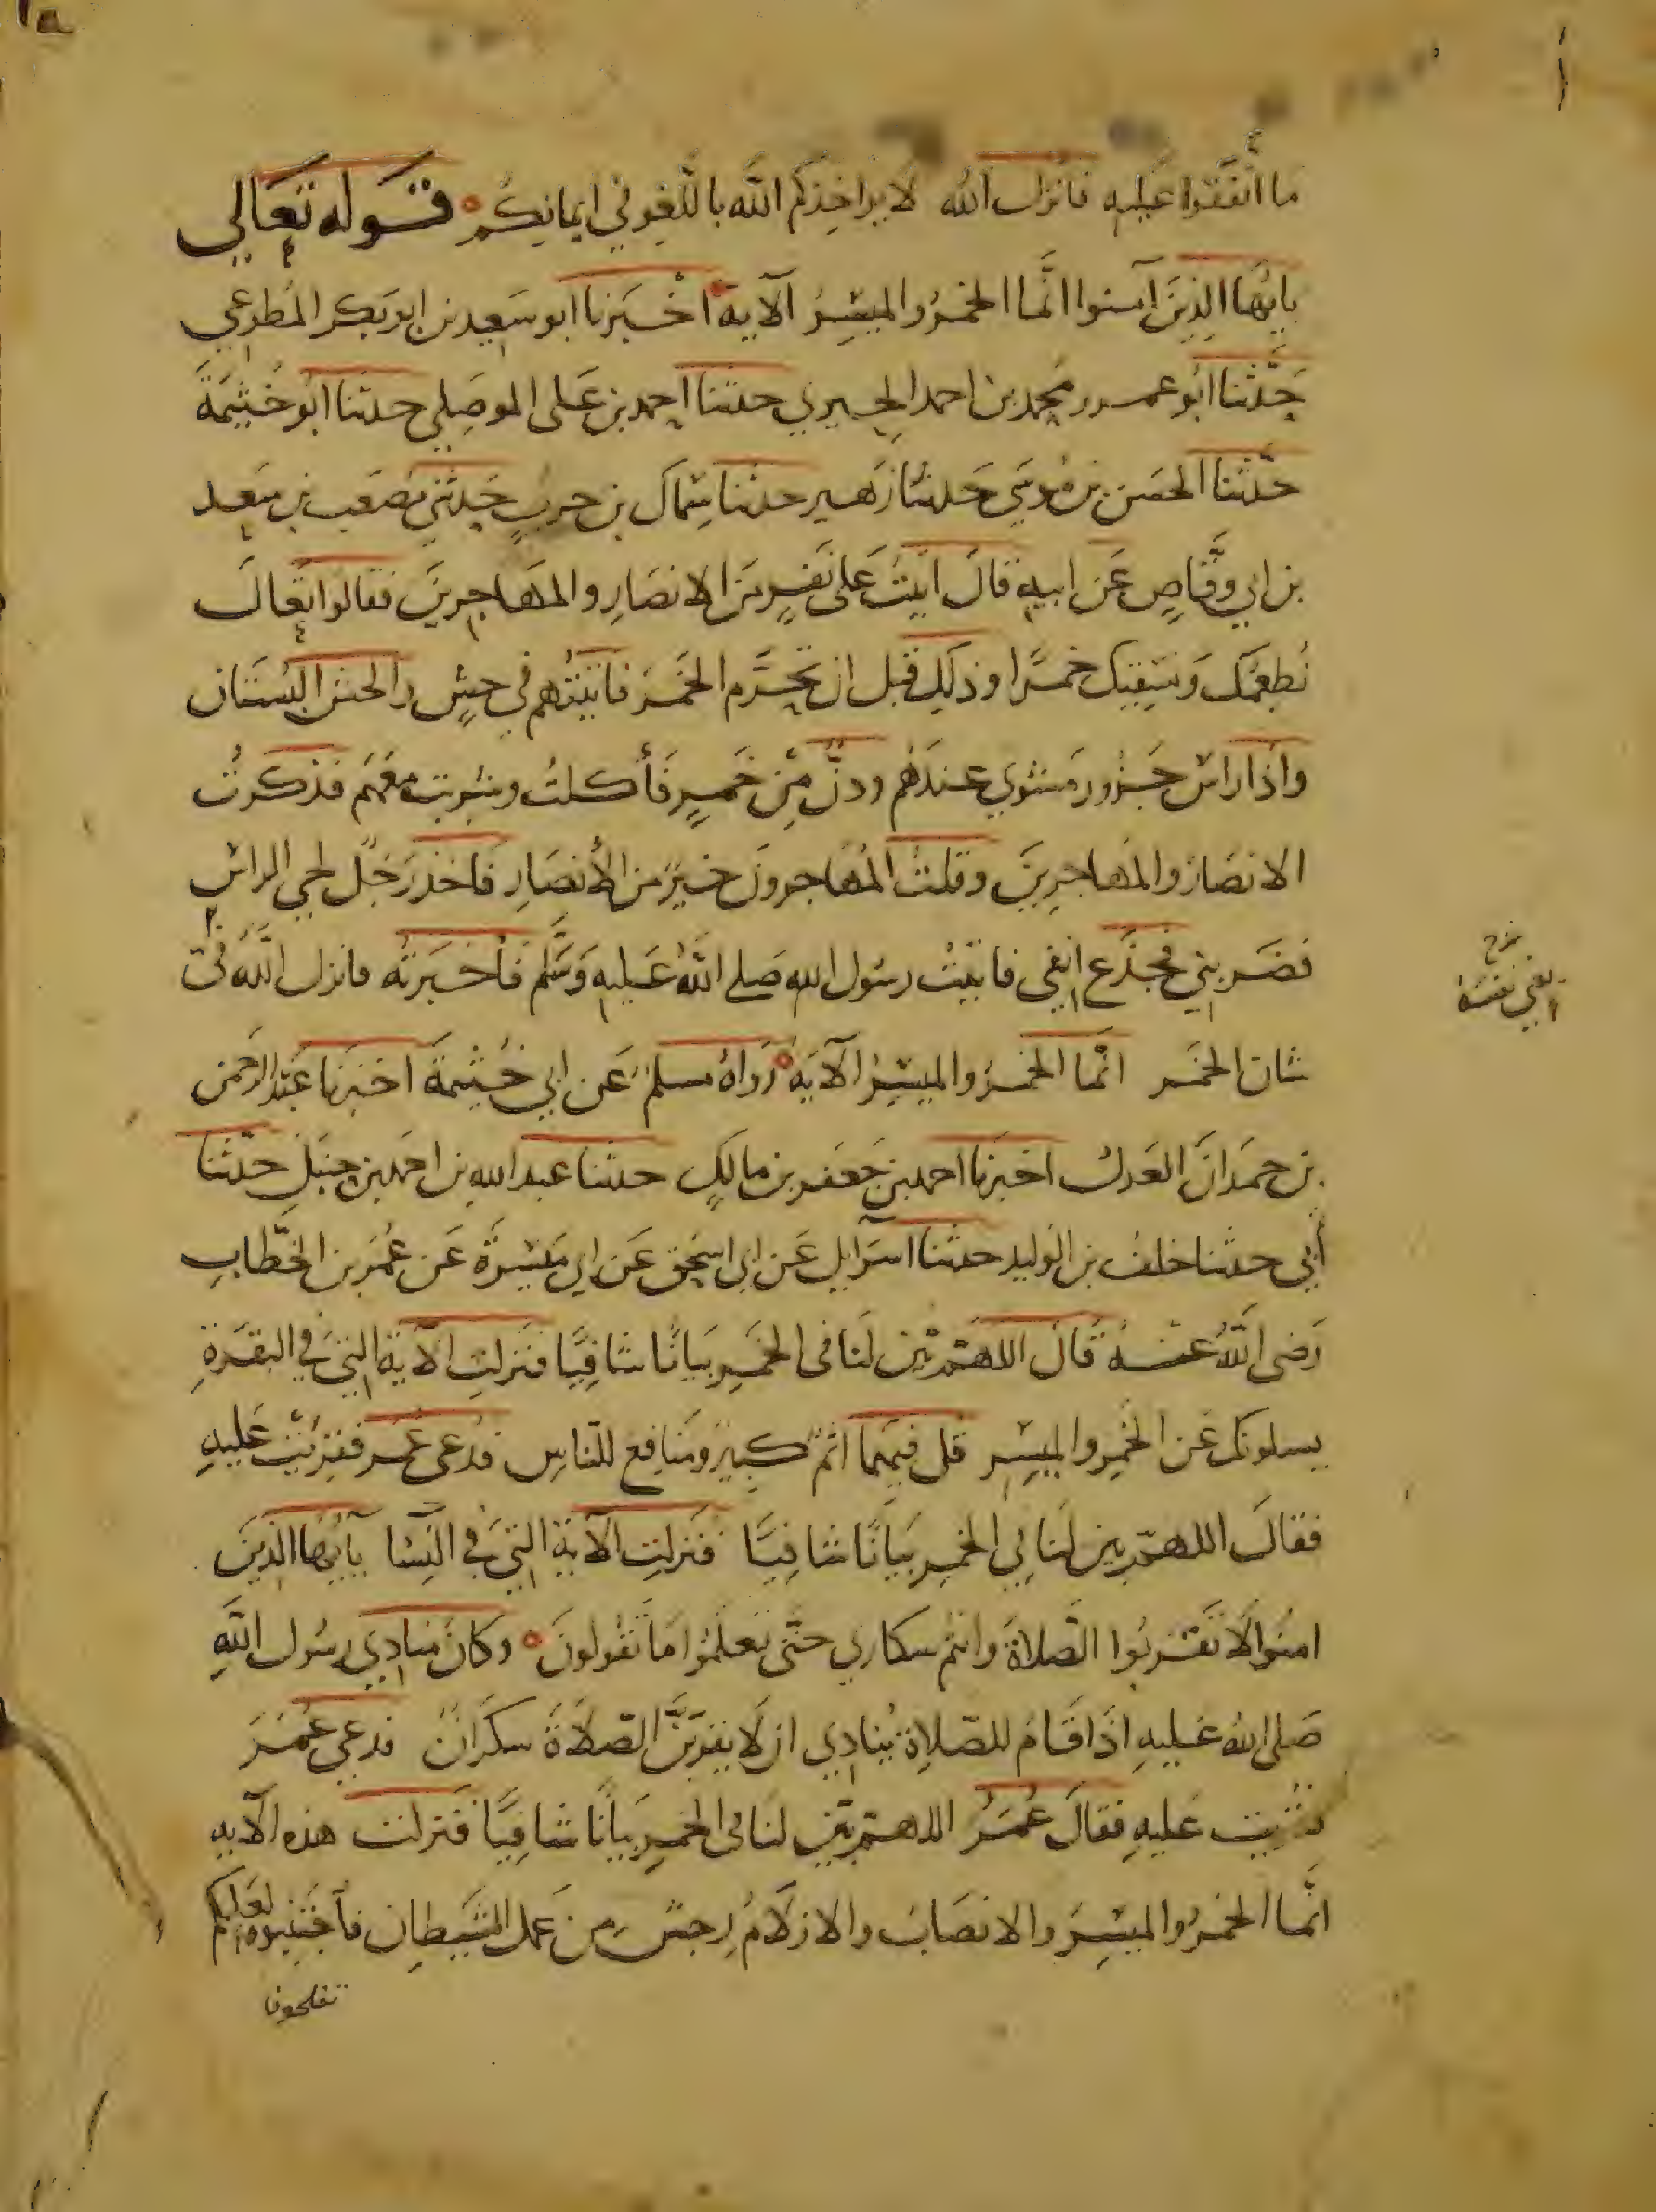 ما اتفقوا عليه فانزل الله لا يواخذكم الله باللغو في ايمانكم ه قوله تعالي
يايها الذين آمنوا انما الخمر والميسر الآية ه اخبرنا ابو سعيد بن ابو بكر المطوعي
حدثنا ابو عمرو محمد بن احمد الحيري حدثنا احمد بن على الموصلي حدثنا ابو خثيمة
حدثنا الحسن بن موسي حدثنا زهير حدثنا سماك بن حرب حدثني مصعب بن سعد
بن ابي وقاص عن ابيه قال اتيت على نفر من الانصار والمهاجرين فقالوا تعال
نطعمك ونسقيك خمرا وذلك قبل ان تحرم الخمر فاتيتهم في حش والحش البستان
واذا راس جزور مشوي عندهم ودن من خمر فأكلت وشربت معهم فذكرت
الانصار والمهاجرين وقلت المهاجرون خير من الأنصار فاخذ رجل لحي الراس
فضربني فجذع انفي فاتيت رسول الله صلى الله عليه وسلم فأخبرته فانزل الله في
شان الخمر انما الخمر والميسر الآية ه رواه مسلم عن ابي خثيمة اخبرنا عبد الرحمن
بن حمدان العدل اخبرنا احمد بن جعفر بن مالك حدثنا عبد الله بن احمد بن حنبل حدثنا
أبي حدثنا خلف بن الوليد حدثنا اسرآيل عن ابي اسحق عن ابي ميسرة عن عمر بن الخطاب
رضى الله عنه قال اللهم بين لنا فى الخمر بيانا شافيا فنزلت الآية التي في البقرة
يسلونك عن الخمر والميسر قل فيهما اثم كبير ومنافع للناس فدعى عمر فقرئت عليه
فقال اللهم بين لنا في الخمر بيانا شافيا فنزلت الآية التي في النسا يآيها الذين
امنوا لا تقربوا الصلاة وانتم سكاري حتى تعلموا ما تقولون ه وكان منادي رسول الله
صلى الله عليه اذا قام للصلاة ينادي ان لا يقربن الصلاة سكران فدعي عمر
فقريت عليه فقال عمر اللهم بين لنا في الخمر بيانا شافيا فنزلت هذه الآيه
انما الخمر والميسر والانصاب والازلام رجس من عمل الشيطان فآجتنبوه لعلكم
تفلحون